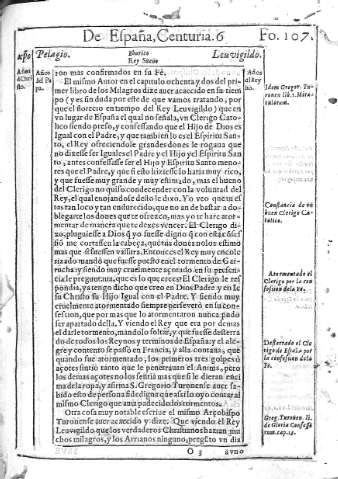 De España, Centuria. 6 Fo. 107.
Pelagio. Rey Sueuo Leuvigildo.
Años del Pa
pa.
Años
del Rey
no.
ron mas confirmados en su Fè.
El mismo Autor en el capitulo ochenta y dos del pri
mer libro de los Milagros dize auer acaecido en su tiem
po (y es sin duda por este de que vamos tratando, por
que el florecio en tiempo del Rey Leuuigildo) que en
vn lugar de España el qual no señala, vn Clerigo Cato
lico siendo preso, y confessando que el Hijo de Dios es
Igual con el Padre, y que tambien lo es el Espiritu San-
to, el Rey ofreciendole grandes dones le rogaua que
no dixesse ser Iguales el Hijo y el Espiritu San
to, antes confessasse ser el Hijo y Espiritu Santo meno-
res que el Padre, y que si esto hiziesse lo haria muy rico,
y que fuesse muy grande y muy estimado, mas el bueno
del Clerigo no quiso condecender con la voluntad del
Rey, el qual enojandose dixo Yo veo que
tan loco y tan endurecido, que no an de bastar a do-
blegarte los dones que te ofrezco, mas yo te hare ator-
mentar de manera que te dexes vencer. El Clerigo di-
xo, pluguiesse a Dios que yo fuesse digno que con essa
me cortassen la cabeça,
Entonces el Rey muy encole
rizado mandò que fuesse puesto en el tormento de Gar-
rucha: y siendo muy cruelmente açotado en su presen-
cia le preguntaua, que es lo que crees? El Clerigo le res
pondia, ya tengo dicho que creo en Dios Padre y en
su Hijo Igual con el Padre. Y siendo muy
cruelmente atormentado siempre perseverò en su con-
fession, que por mas que lo atormentaron nunca pudo
ser apartado della. Y viendo el Rey que era por demas
el darle tormento, mandolo soltar, y que fuesse desterra
do de todos los Reynos y terminos de España: y el ale-
gre y contento se passò en Francia, y alla contaua, que
quando fue atormentado, los primeros tres golpes de
açotes sintio tanto que le penetrauan el Anima, pero
los demas açotes no los sentia mas que si le dieran enci
ma de la ropa, y afirma S. Gregorio Turonense auer sa-
bido esto de persona fidedigna que assi lo oyo contar al
mismo Clerigo que auia padecido los tormentos.
Otra cosa muy notable escriue el mismo Arçobispo
Turonense auer acaecido y dize: Que viendo el Rey
Leuuigildo que los verdaderos Christianos hazian mu
chos milagros, y los Arrianos ninguno, pregũto vn dia
O 3 a vno
Idem Gregor. Tu-
ronen lib. 1. Mira-
culorum.
Constancia de vn
buen Clerigo Ca-
tolico.
Atormentado el
Clerigo por la con
fession de la Fè.
Desterrado el Cle
rigo de España por
la confession de la
Fè.
Greg. Turonen. li.
de Gloria Confess
rum. cap. 13.